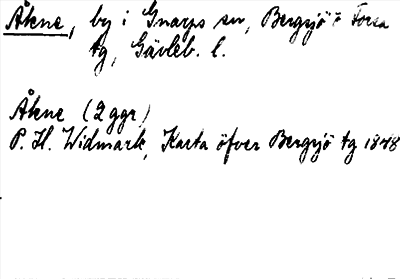 Åkne, by i Gnarps sn, Bergsjö o Forsa
tg, Gävleb. l.
Åkne (2 ggr)
P. H. Widmark, Karta öfver Bergsjö tg 1848